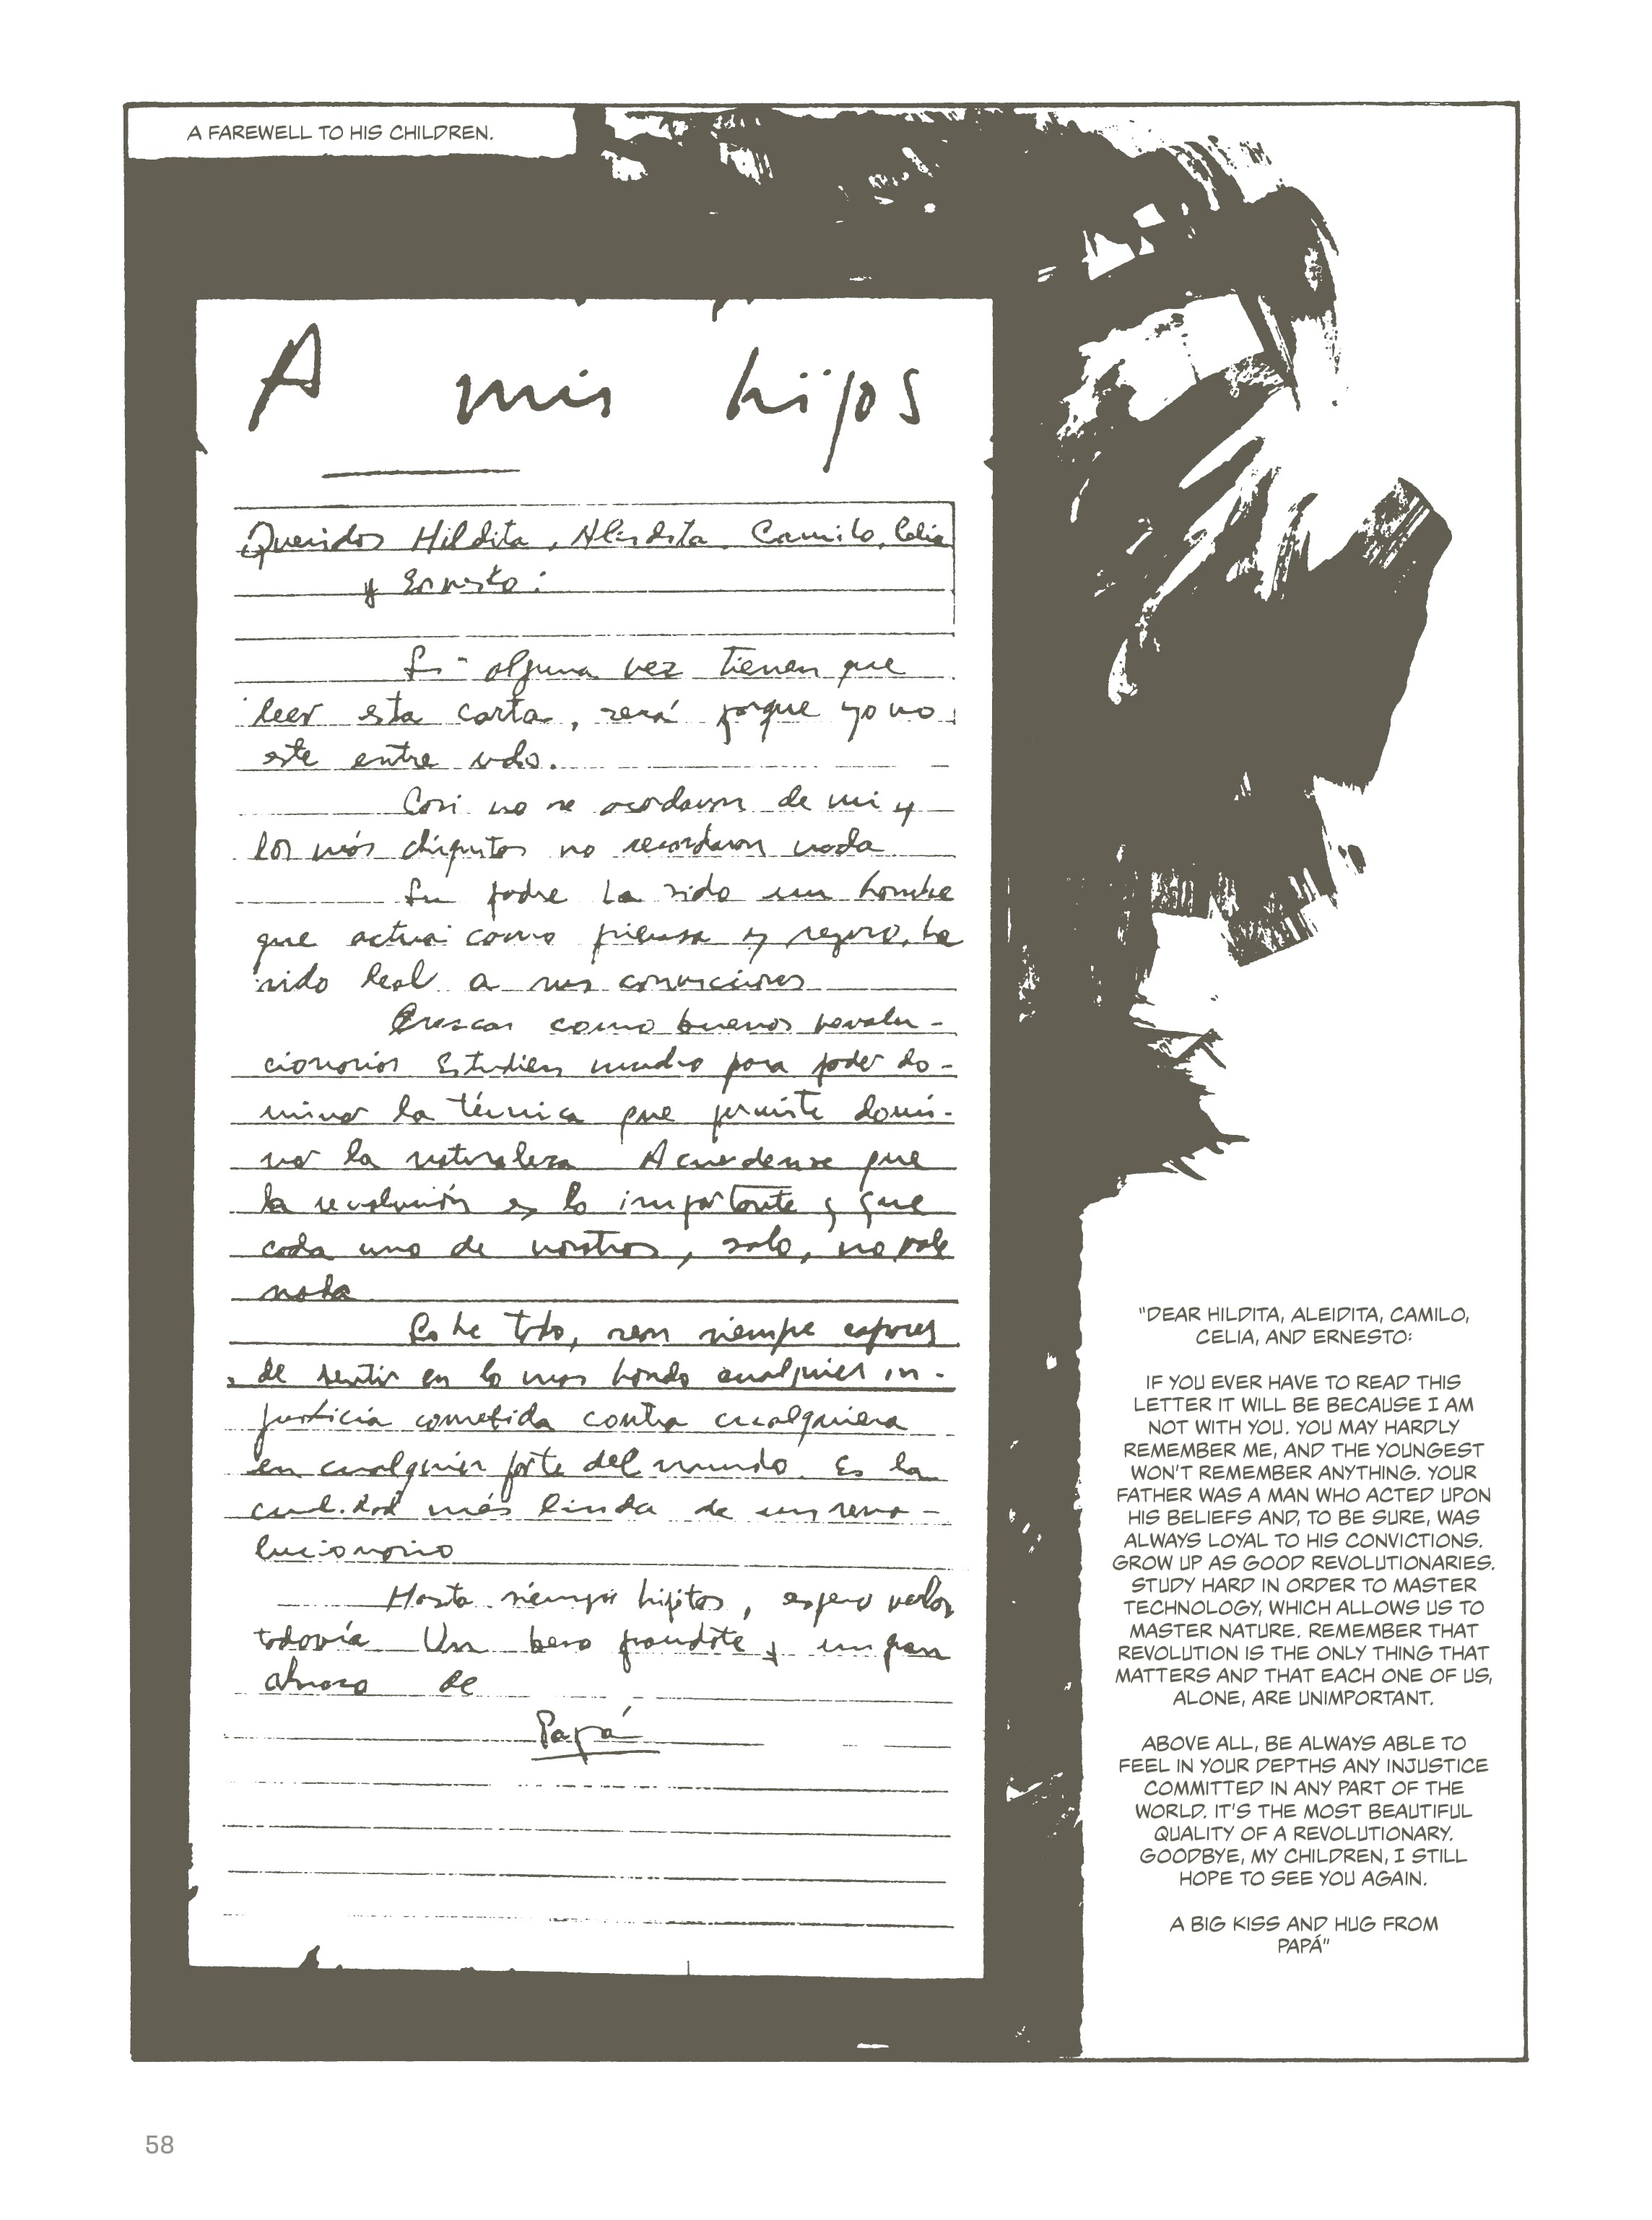 A FAREWELL TO HIS CHILDREN.
A mis hijos
Queridos Hildita, Aleidita, Camilo, Celia
y Ernesto:
Si alguna vez tienen que
leer esta carta, será porque yo no
este entre uds.
Casi no se acordaran de mi y
los más chiquitos no recordaran nada
Su padre ha sido un hombre
que actua como piensa y seguro, ha
sido leal a sus convicciones
Crezcan como buenos revolu-
cionarios Estudien mucho para poder do-
minar la técnica que permite domi-
nar la naturaleza Acuerdense que
la revolución es lo importante y que
cada uno de nosotros, solo, no vale
nada
Sobre todo, sean siempre capaces
de sentir en lo mas hondo cualquier in-
justicia cometida contra cualquiera
en cualquier parte del mundo. Es la
cualidad más linda de un revo-
lucionario
Hasta siempre hijitos, espero verlos
todavía Un beso grandote y un gran
abrazo de
Papá
"DEAR HILDITA, ALEIDITA, CAMILO,
CELIA, AND ERNESTO:
IF YOU EVER HAVE TO READ THIS
LETTER IT WILL BE BECAUSE I AM
NOT WITH YOU. YOU MAY HARDLY
REMEMBER ME, AND THE YOUNGEST
WON'T REMEMBER ANYTHING. YOUR
FATHER WAS A MAN WHO ACTED UPON
HIS BELIEFS AND, TO BE SURE, WAS
ALWAYS LOYAL TO HIS CONVICTIONS.
GROW UP AS GOOD REVOLUTIONARIES.
STUDY HARD IN ORDER TO MASTER
TECHNOLOGY, WHICH ALLOWS US TO
MASTER NATURE. REMEMBER THAT
REVOLUTION IS THE ONLY THING THAT
MATTERS AND THAT EACH ONE OF US,
ALONE, ARE UNIMPORTANT.
ABOVE ALL, BE ALWAYS ABLE TO
FEEL IN YOUR DEPTHS ANY INJUSTICE
COMMITTED IN ANY PART OF THE
WORLD. IT'S THE MOST BEAUTIFUL
QUALITY OF A REVOLUTIONARY.
GOODBYE, MY CHILDREN, I STILL
HOPE TO SEE YOU AGAIN.
A BIG KISS AND HUG FROM
PAPÁ"
58